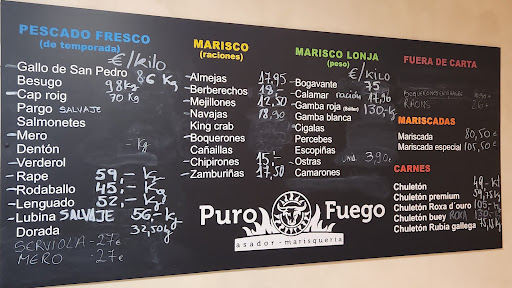 PESCADO FRESCO
(de temporada)
€/kilo
Gallo de San Pedro 86 Kg
Besugo 98 Kg
Cap roig 70 Kg
Pargo SALVAJE
Salmonetes
Mero
Dentón - Kg
Verderol
Rape 59,- kg
Rodaballo 45,- kg
Lenguado 52,- kg
Lubina SALVAJE 56,- kg
Dorada 32,50 kg
SERVIOLA - 27€
MERO - 27€
MARISCO
(raciones)
Almejas 17,95
Berberechos 18,-
Mejillones 12,50
Navajas 18,90
King crab
Boquerones
Cañaillas
Chipirones 15,-
Zamburiñas 17,50
MARISCO LONJA
(peso)
€/KILO
Bogavante 75
Calamar ración 17,96
Gamba roja 130,- kg
Gamba blanca
Cigalas
Percebes
Escopiñas
Ostras und. 3,90
Camarones
FUERA DE CARTA
RAONS 26
MARISCADAS
Mariscada 80,50 €
Mariscada especial 105,50 €
CARNES
Chuletón 49,- kg
Chuletón premium 59,75 kg
Chuletón Roxa d´ouro 105,- kg
Chuletón buey ROXA 130,-
Chuletón Rubia gallega 75,15 kg
Puro Fuego
asador - marisquería